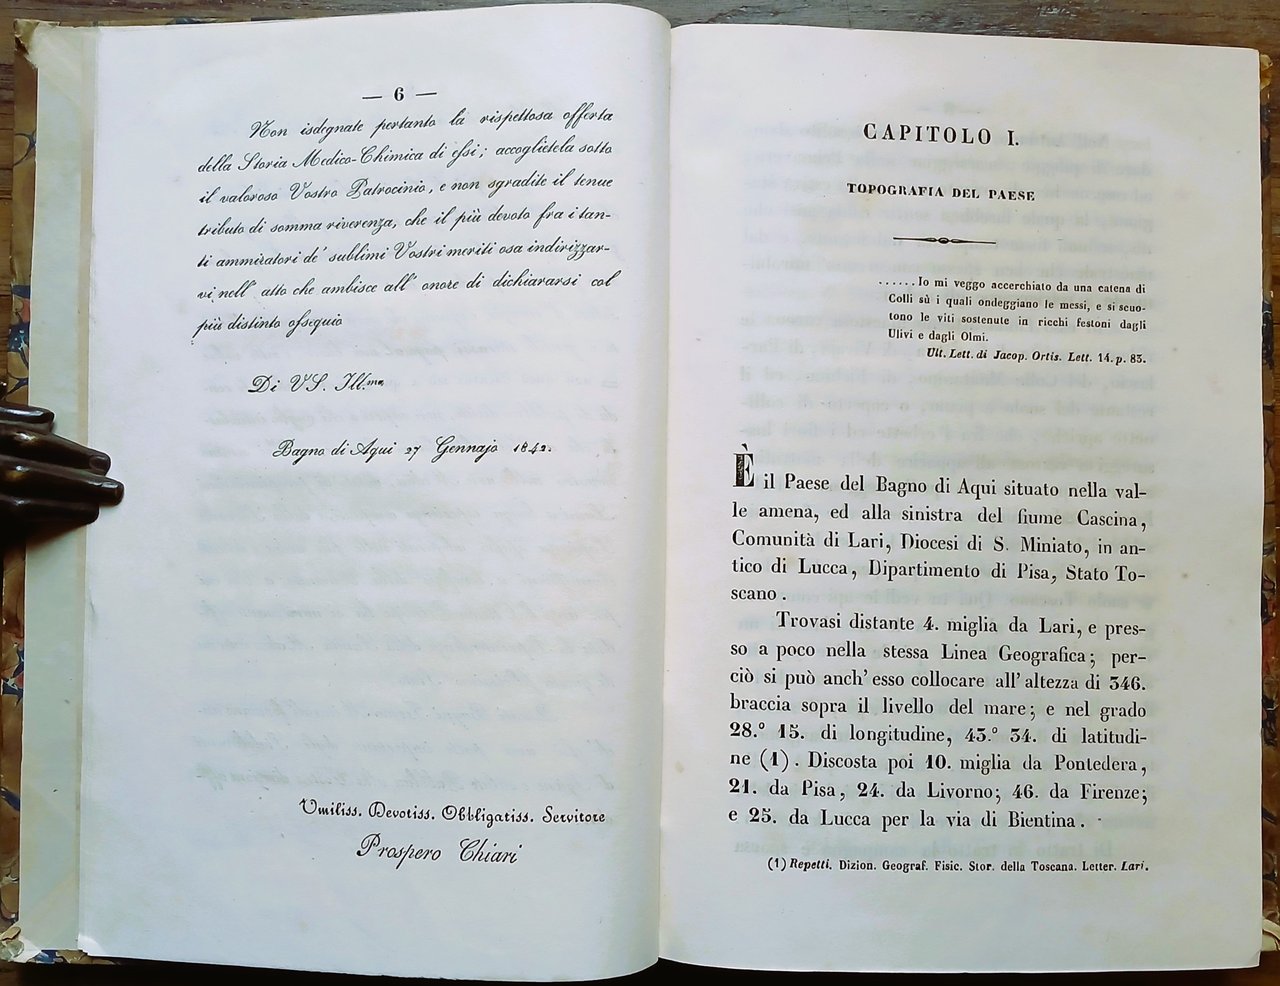 — 6 —
Non isdegnate pertanto la rispettosa offerta
della Storia Medico-Chimica di essi; accoglietela sotto
il valoroso Vostro Patrocinio, e non sgradite il tenue
tributo di somma riverenza, che il più devoto fra i tan-
ti ammiratori de' sublimi Vostri meriti osa indirizzar-
vi nell' atto che ambisce all' onore di dichiararsi col
più distinto ossequio
Di VS. Ill.ma
Bagno di Aqui 27 Gennajo 1842.
Umiliss. Devotiss. Obbligatiss. Servitore
Prospero Chiari
CAPITOLO I.
TOPOGRAFIA DEL PAESE
......Io mi veggo accerchiato da una catena di
Colli sù i quali ondeggiano le messi, e si scuo-
tono le viti sostenute in ricchi festoni dagli
Ulivi e dagli Olmi.
Ult. Lett. di Jacop. Ortis. Lett. 14. p. 83.
È il Paese del Bagno di Aqui situato nella val-
le amena, ed alla sinistra del fiume Cascina,
Comunità di Lari, Diocesi di S. Miniato, in an-
tico di Lucca, Dipartimento di Pisa, Stato To-
scano.
Trovasi distante 4. miglia da Lari, e pres-
so a poco nella stessa Linea Geografica; per-
ciò si può anch' esso collocare all' altezza di 346.
braccia sopra il livello del mare; e nel grado
28.° 15. di longitudine, 43.° 34. di latitudi-
ne (1). Discosta poi 10. miglia da Pontedera,
21. da Pisa, 24. da Livorno; 46. da Firenze;
e 25. da Lucca per la via di Bientina.
(1) Repetti. Dizion. Geograf. Fisic. Stor. della Toscana. Letter. Lari.